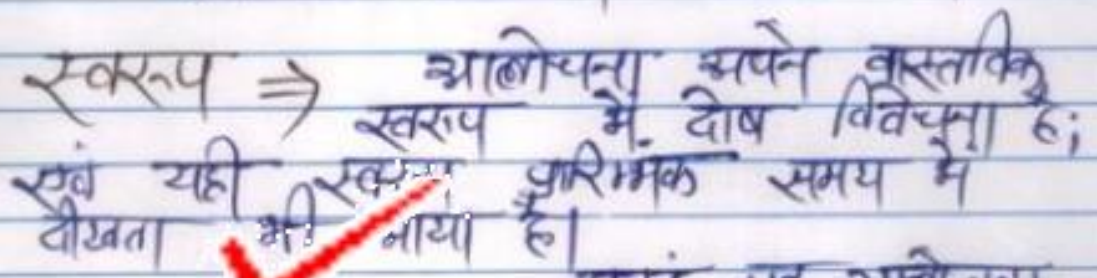 स्वरूप ⇒ आलोचना अपने वास्तविक
स्वरूप में दोष विवेचना है;
एवं यही स्वरूप प्रारम्भिक समय में
दीखता भी आया है।